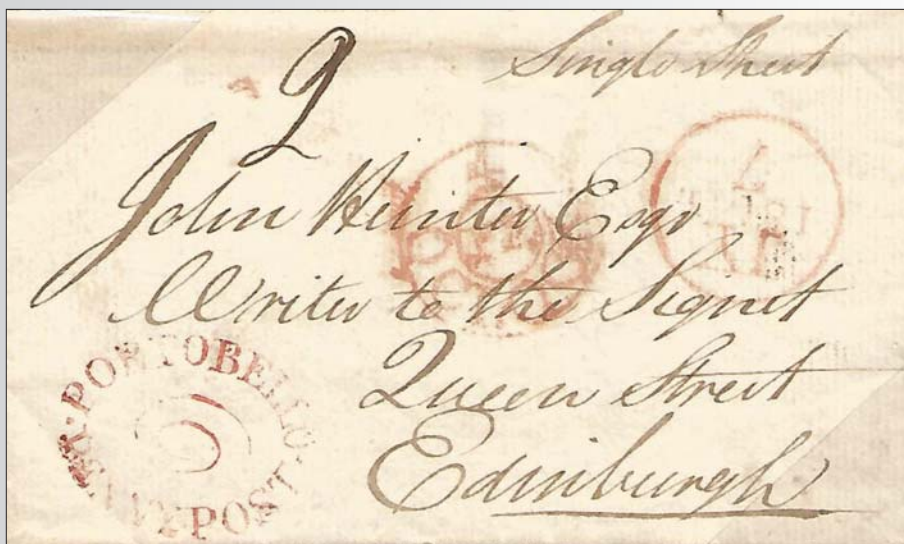 Single Sheet
2
John Hunter Esqr
Writer to the Signet
Queen Street
Edinburgh
PORTOBELLO
PENNY POST
7